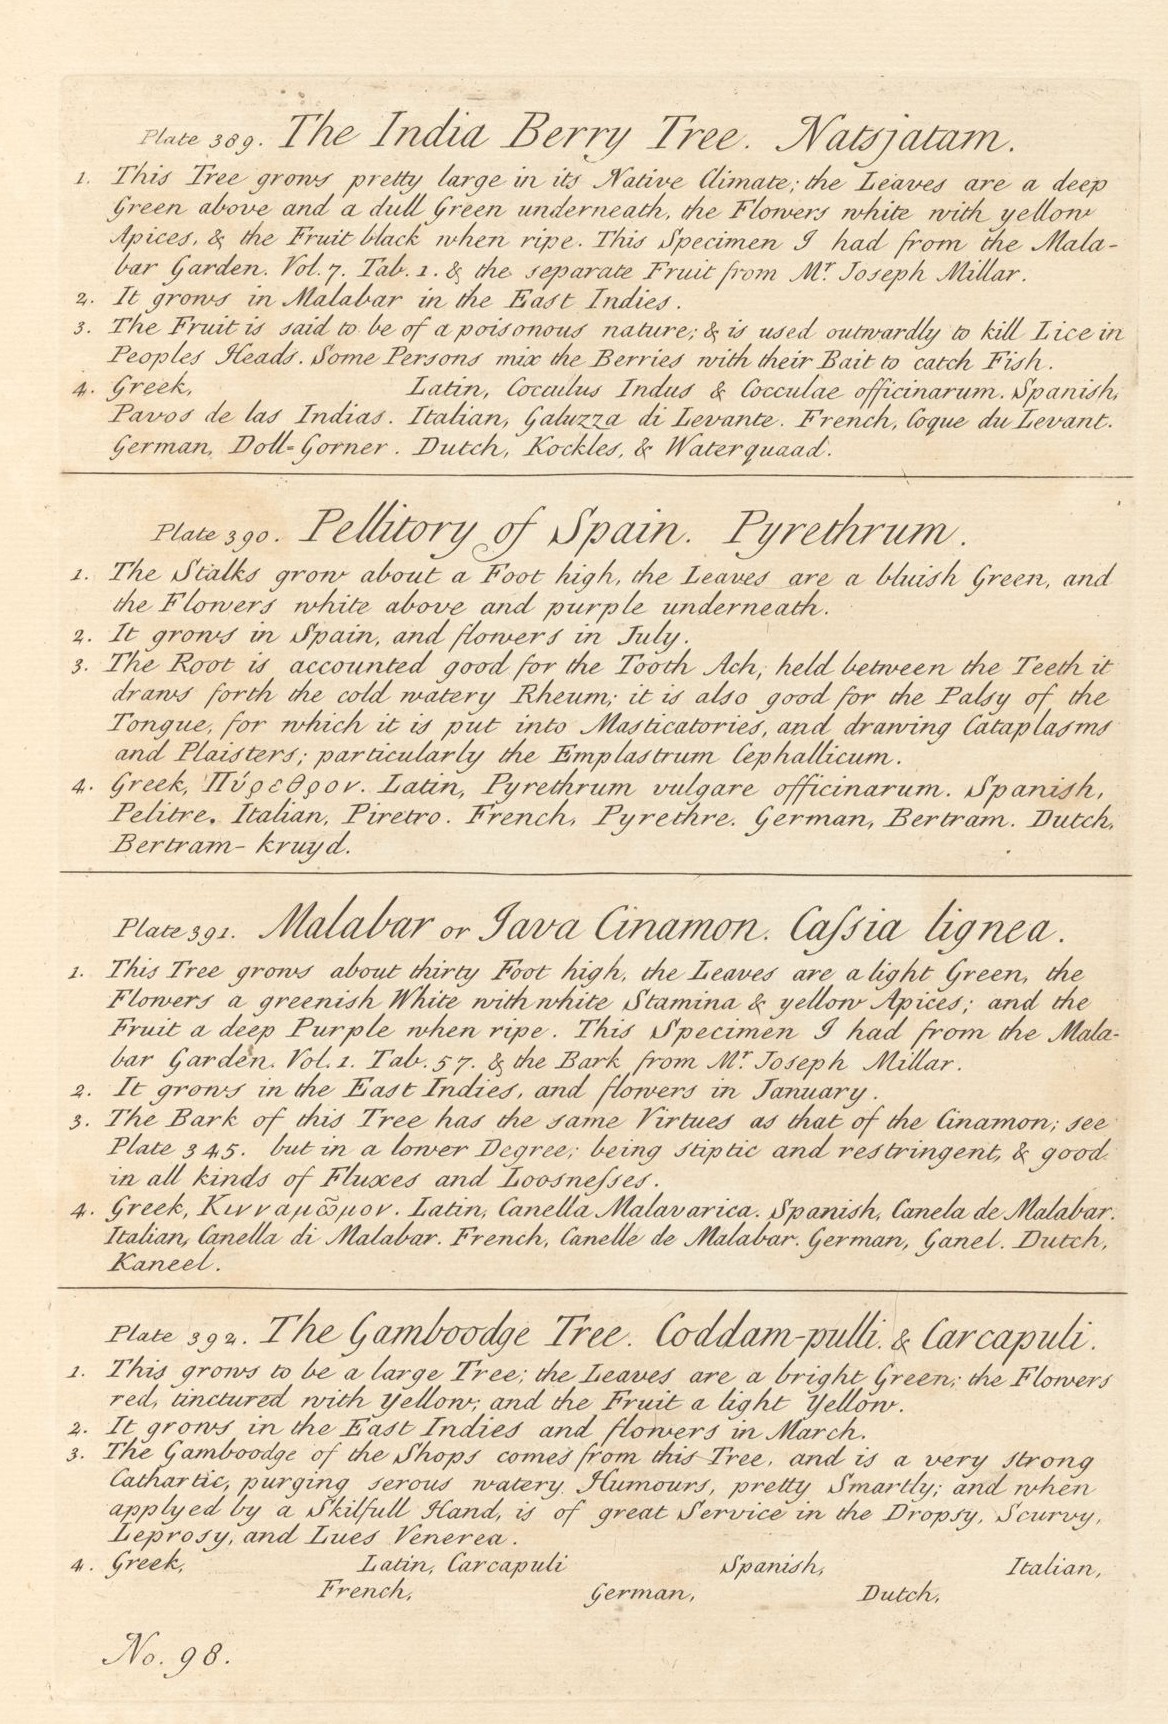 Plate 389. The India Berry Tree. Natsjatam.
1. This Tree grows pretty large in its Native Climate; the Leaves are a deep
Green above and a dull Green underneath, the Flowers white with yellow
Apices, & the Fruit black when ripe. This Specimen I had from the Mala-
bar Garden. Vol. 7. Tab. 1. & the separate Fruit from Mr. Joseph Millar.
2. It grows in Malabar in the East Indies.
3. The Fruit is said to be of a poisonous nature; & is used outwardly to kill Lice in
Peoples Heads. Some Persons mix the Berries with their Bait to catch Fish.
4. Greek, Latin, Cocculus Indus & Cocculae officinarum. Spanish,
Pavos de las Indias. Italian, Galuzza di Levante. French, Coque du Levant.
German, Doll=Gorner. Dutch, Kockles, & Waterquaad.
Plate 390. Pellitory of Spain. Pyrethrum.
1. The Stalks grow about a Foot high, the Leaves are a bluish Green, and
the Flowers white above and purple underneath.
2. It grows in Spain, and flowers in July.
3. The Root is accounted good for the Tooth Ach, held between the Teeth it
draws forth the cold watery Rheum; it is also good for the Palsy of the
Tongue, for which it is put into Masticatories, and drawing Cataplasms
and Plaisters; particularly the Emplastrum Cephallicum.
4. Greek, Πύρεθρον. Latin, Pyrethrum vulgare officinarum. Spanish,
Pelitre. Italian, Piretro. French, Pyrethre. German, Bertram. Dutch,
Bertram-kruyd.
Plate 391. Malabar or Java Cinamon. Caſsia lignea.
1. This Tree grows about thirty Foot high, the Leaves are a light Green, the
Flowers a greenish White with white Stamina & yellow Apices; and the
Fruit a deep Purple when ripe. This Specimen I had from the Mala-
bar Garden. Vol. 1. Tab. 57. & the Bark from Mr. Joseph Millar.
2. It grows in the East Indies, and flowers in January.
3. The Bark of this Tree has the same Virtues as that of the Cinamon; see
Plate 345. but in a lower Degree; being stiptic and restringent, & good
in all kinds of Fluxes and Loosneſses.
4. Greek, Κινναμῶμον. Latin, Canella Malavarica. Spanish, Canela de Malabar.
Italian, Canella di Malabar. French, Canelle de Malabar. German, Ganel. Dutch,
Kaneel.
Plate 392. The Gamboodge Tree. Coddam-pulli. & Carcapuli.
1. This grows to be a large Tree; the Leaves are a bright Green; the Flowers
red, tinctured with Yellow; and the Fruit a light Yellow.
2. It grows in the East Indies and flowers in March.
3. The Gamboodge of the Shops comes from this Tree, and is a very strong
Cathartic, purging serous watery Humours, pretty Smartly; and when
applyed by a Skilfull Hand, is of great Service in the Dropsy, Scurvy,
Leprosy, and Lues Venerea.
4. Greek, Latin, Carcapuli Spanish, Italian,
French, German, Dutch,
No. 98.